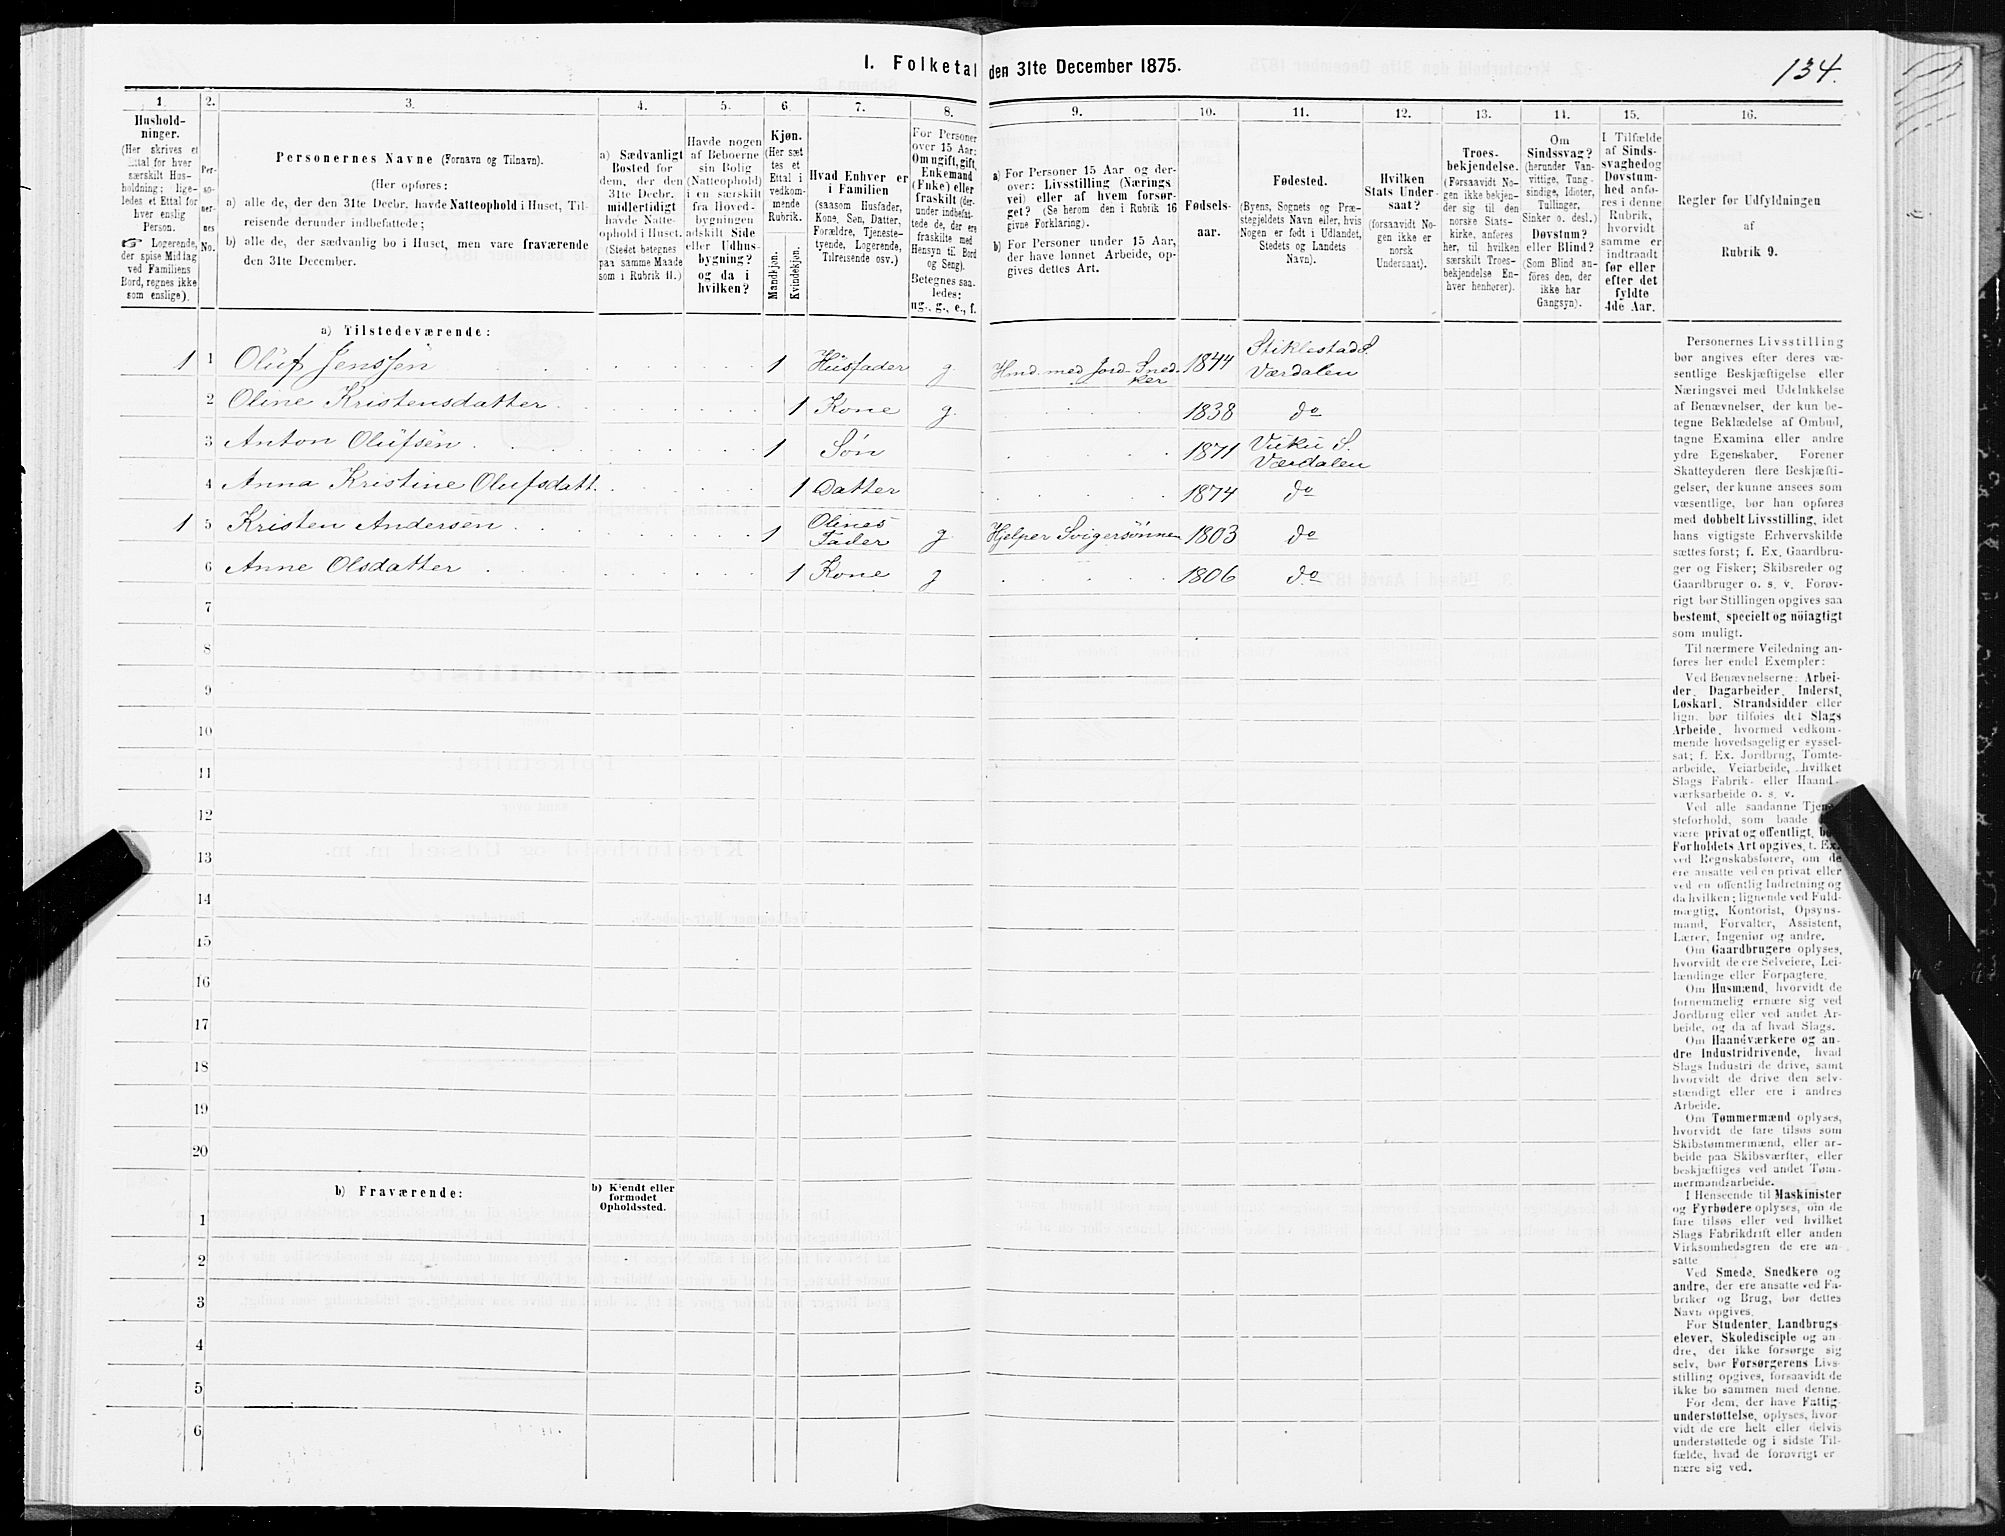 I. Folketal den 31te December 1875.
134.
1.
Hushold-
ninger.
(Her skrives et
Ettal for hver
særskilt Hus-
holdning; lige-
ledes et Ettal for
hver enslig
Person.
☞ Logerende,
der spise Middag
ved Familiens
Bord, regnes ikke
som enslige).
2.
Per-
so-
ner-
nes
No.
3.
Personernes Navne (Fornavn og Tilnavn).
(Her opføres:
a) alle de, der den 31te Decbr. havde Natteophold i Huset, Til-
reisende derunder indbefattede;
b) alle de, der sædvanlig bo i Huset, men vare fraværende
den 31te December.
4.
a) Sædvanligt
Bosted for
dem, der den
31te Decbr.
midlertidigt
havde Natte-
ophold i Huset.
(Stedet betegnes
paa samme Maade
som i Rubrik 11.)
5.
Havde nogen
af Beboerne
sin Bolig
(Natteophold)
i en særskilt
fra Hoved-
bygningen
adskilt Side
eller Udhus-
bygning?
og da i
hvilken?
6.
Kjøn.
(Her sæt
tes et
Ettal i
vedkom-
mende
Rubrik.
Mandkjøn.
Kvindekjøn.
7.
Hvad Enhver er
i Familien
(saasom Husfader,
Kone, Søn, Datter,
Forældre, Tjeneste-
tyende, Logerende,
Tilreisende osv.)
8.
For Personer
over 15 Aar:
Om ugift, gift,
Enkemand
(Enke) eller
fraskilt (der-
under indbefat-
tede de, der ere
fraskilte med
Hensyn til Bord
og Seng).
Betegnes saa-
ledes:
ug., g., e., f.
9.
a) For Personer 15 Aar og der-
over: Livsstilling (Nærings
vei) eller af hvem forsør-
get? (Se herom den i Rubrik 16
givne Forklaring).
b) For Personer under 15 Aar,
der have lønnet Arbeide, op-
gives dettes Art.
10.
Fødsels-
aar.
11.
Fødested.
(Byens, Sognets og Præ-
stegjeldets Navn eller, hvis
Nogen er født i Udlandet,
Stedets og Landets
Navn).
12.
Hvilken
Stats Under-
saat?
(forsaavidt No-
gen ikke er
norsk
Undersaat).
13.
Troes-
bekjendelse.
(Forsaavidt No-
gen ikke bekjen-
der sig til den
norske Stats-
kirke, anføres
her, til hvilken
særskilt Troes-
bekjendelse En-
hver henhører).
14.
Om
Sindssvag?
(herunder Van-
vittige, Tung-
sindige, Idioter,
Tullinger,
Sinker o. desl.)
Døvstum?
eller Blind?
(Som Blind an-
føres den, der
ikke har
Gangsyn).
15.
I Tilfælde
af Sinds-
svaghed og
Døvstum-
hed anfø-
res i denne
Rubrik,
hvorvidt
samme er
indtraadt
før eller
efter det
fyldte
4de Aar.
16.
Regler for Udfyldningen
af
Rubrik 9.
a) Tilstedeværende:
1 1 Oluf Jenssen 1 Husfader g Hmd. med Jord- Sned-
ker 1844 Stiklestad S.
Værdalen
2 Oline Kristensdatter 1 Kone g. 1838 do
3 Anton Olufsen 1 Søn 1871 Vuku S.
Værdalen
4 Anna Kristine Olufsdatt. 1 Datter 1874 do
1 5 Kristen Andersen 1 Olines
Fader g. Hjelper Svigersønnen 1803 do
6 Anne Olsdatter 1 Kone g 1806 do
7
8
9
10
11
12
13
14
15
16
17
18
19
20
b) Fraværende:
b) Kjendt eller
formodet
Opholdssted.
1
2
3
4
5
6
Personernes Livsstilling
bør angives efter deres væ-
sentlige Beskjæftigelse eller
Næringsvei med Udelukkelse
af Benævnelser, der kun be-
tegne Beklædelse af Ombud,
tagne Examina eller andre
ydre Egenskaber. Forener
Skatteyderen flere Beskjæfti-
gelser, der kunne ansees som
væsentlige, bør han opføres
med dobbelt Livsstilling, idet
hans vigtigste Erhvervskilde
sættes først; f. Ex. Gaardbru-
ger og Fisker; Skibsreder og
Gaardbruger o. s. v. Forøv-
rigt bør Stillingen opgives saa
bestemt, specielt og nöiagtigt
som muligt.
Til nærmere Veiledning an-
føres her endel Exempler:
Ved Benævnelserne: Arbei-
der, Dagarbeider, Inderst,
Løskarl, Strandsidder eller
lign. bør tilføies det Slags
Arbeide, hvormed vedkom-
mende hovedsagelig er syssel-
sat; f. Ex. Jordbrug, Tomte-
arbeide, Veiarbeide, hvilket
Slags Fabrik- eller Haand-
værksarbeide o. s. v.
Ved alle saadanne Tjene-
steforhold, som baade
være privat og offentligt, bør
Forholdets Art opgives, t. Ex.
ved Regnskabsførere, om de
ere ansatte ved en privat eller
ved en offentlig Indretning og
da hvilken; lignende ved Fuld-
mægtig, Kontorist, Opsyns-
mand, Forvalter, Assistent,
Lærer, Ingeniør og andre.
Om Gaardbrugere oplyses,
hvorvidt de ere Selveiere, Lei-
lændinge eller Forpagtere.
Om Husmænd, hvorvidt de
fornemmelig ernære sig ved
Jordbrug eller ved andet Ar-
beide, og da af hvad Slags.
Om Haandværkere og an-
dre Industridrivende, hvad
Slags Industri de drive, samt
hvorvidt de drive den selv-
stændigt eller ere i andres
Arbeide.
Om Tømmermænd oplyses,
hvorvidt de fare tilsøs som
Skibstømmermænd, eller ar-
beide paa Skibsværfter, eller
beskjæftiges ved andet Tøm-
mermandsarbeide.
I Henseende til Maskinister
og Fyrbødere oplyses, om de
fare tilsøs eller ved hvilket
Slags Fabrikdrift eller anden
Virksomhedsgren de ere an-
satte
Ved Smede, Snedkere og
andre, der ere ansatte ved Fa-
briker og Brug, bør dettes
Navn opgives.
For Studenter, Landbrugs-
elever, Skoledisciple og an-
dre, der ikke forsørge sig
selv, bør Forsørgerens Livs-
stilling opgives, forsaavidt de
ikke bo sammen med denne.
For dem, der have Fattig-
understøttelse, oplyses, hvor-
vidt de ere helt eller delvis
understøttede og i sidste Til-
fælde, hvad de forøvrigt er-
nære sig ved.